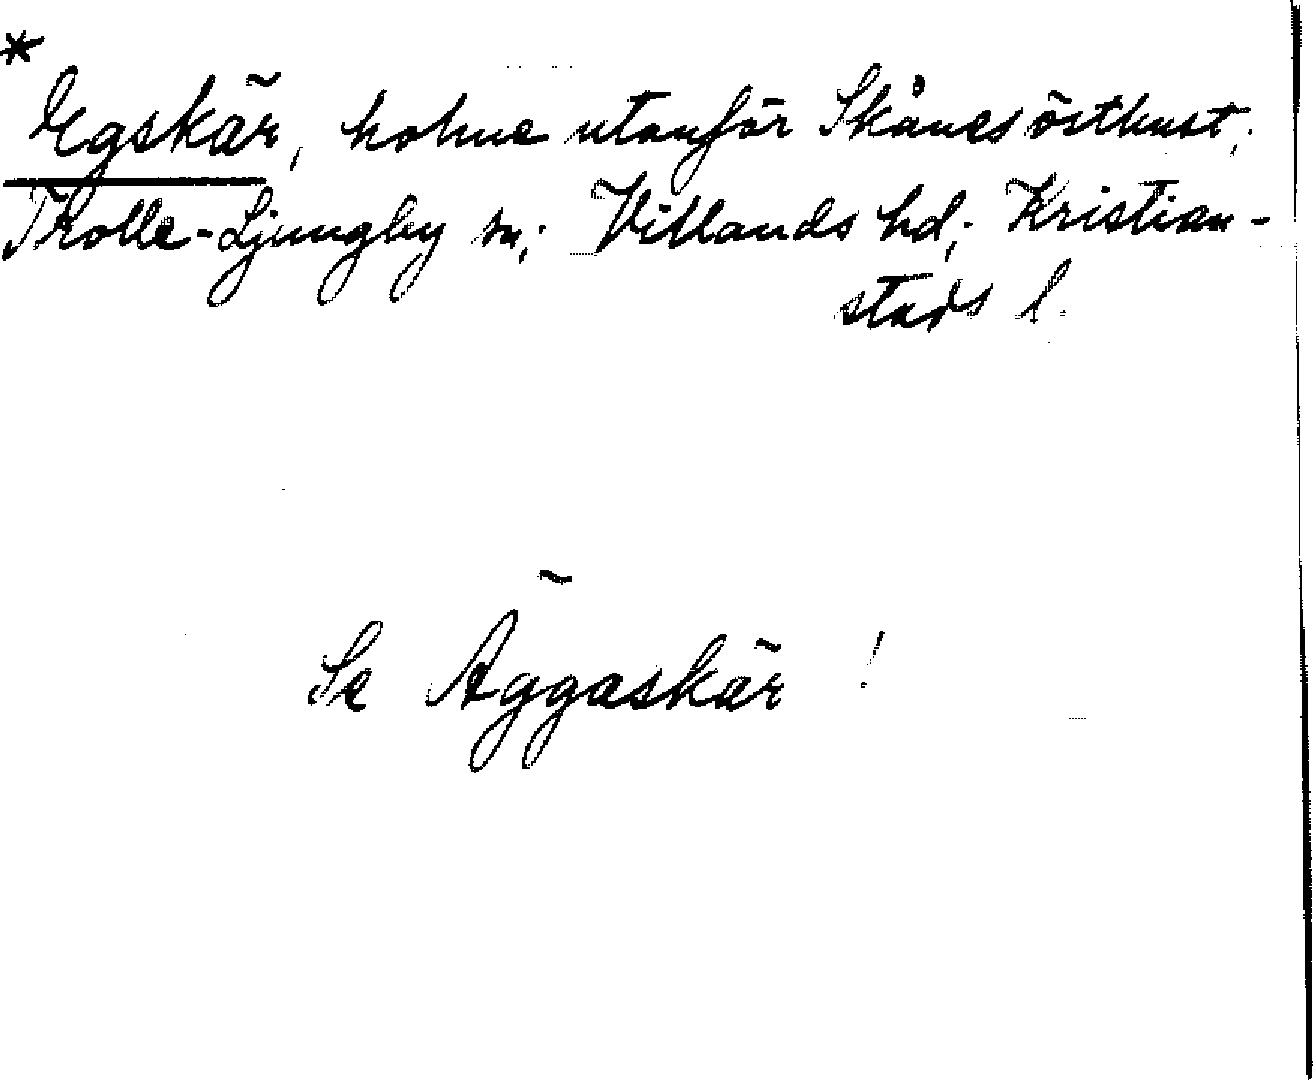 *
Egskär, holme utanför Skånes östkust;
Trolle-Ljungby sn; Villands hd; Kristian-
stads l.
Se Äggaskär !